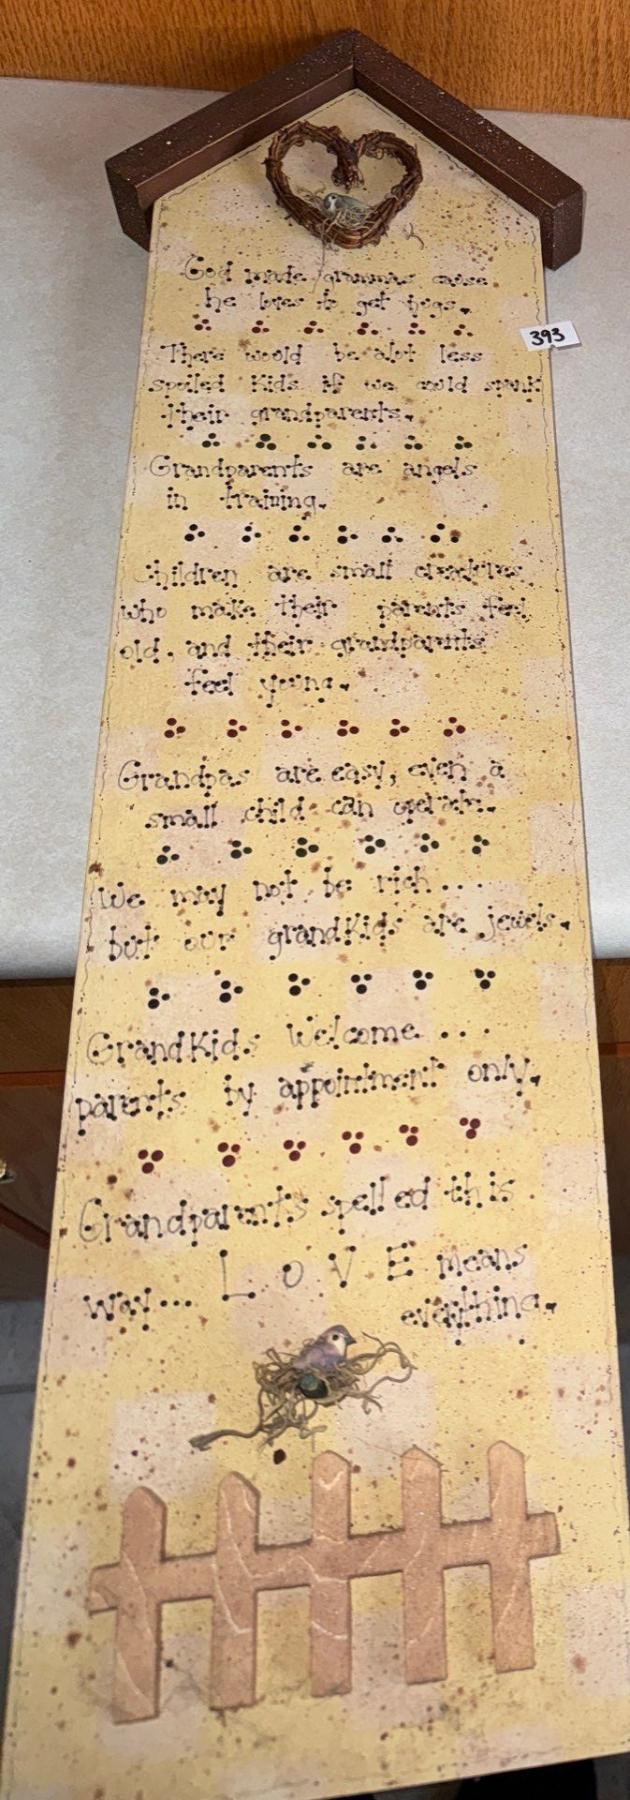 God made grammas cause
he loves to get hugs.
393
There would be alot less
spoiled Kids if we could spank
their grandparents.
Grandparents are angels
in training.
Children are small creatures
who make their parents feel
old, and their grandparents
feel young.
Grandpas are easy, even a
small child can operate.
We may not be rich...
but our grandKids are jewels.
GrandKids Welcome...
parents by appointment only.
Grandparents spelled this
way... L O V E means
everything.